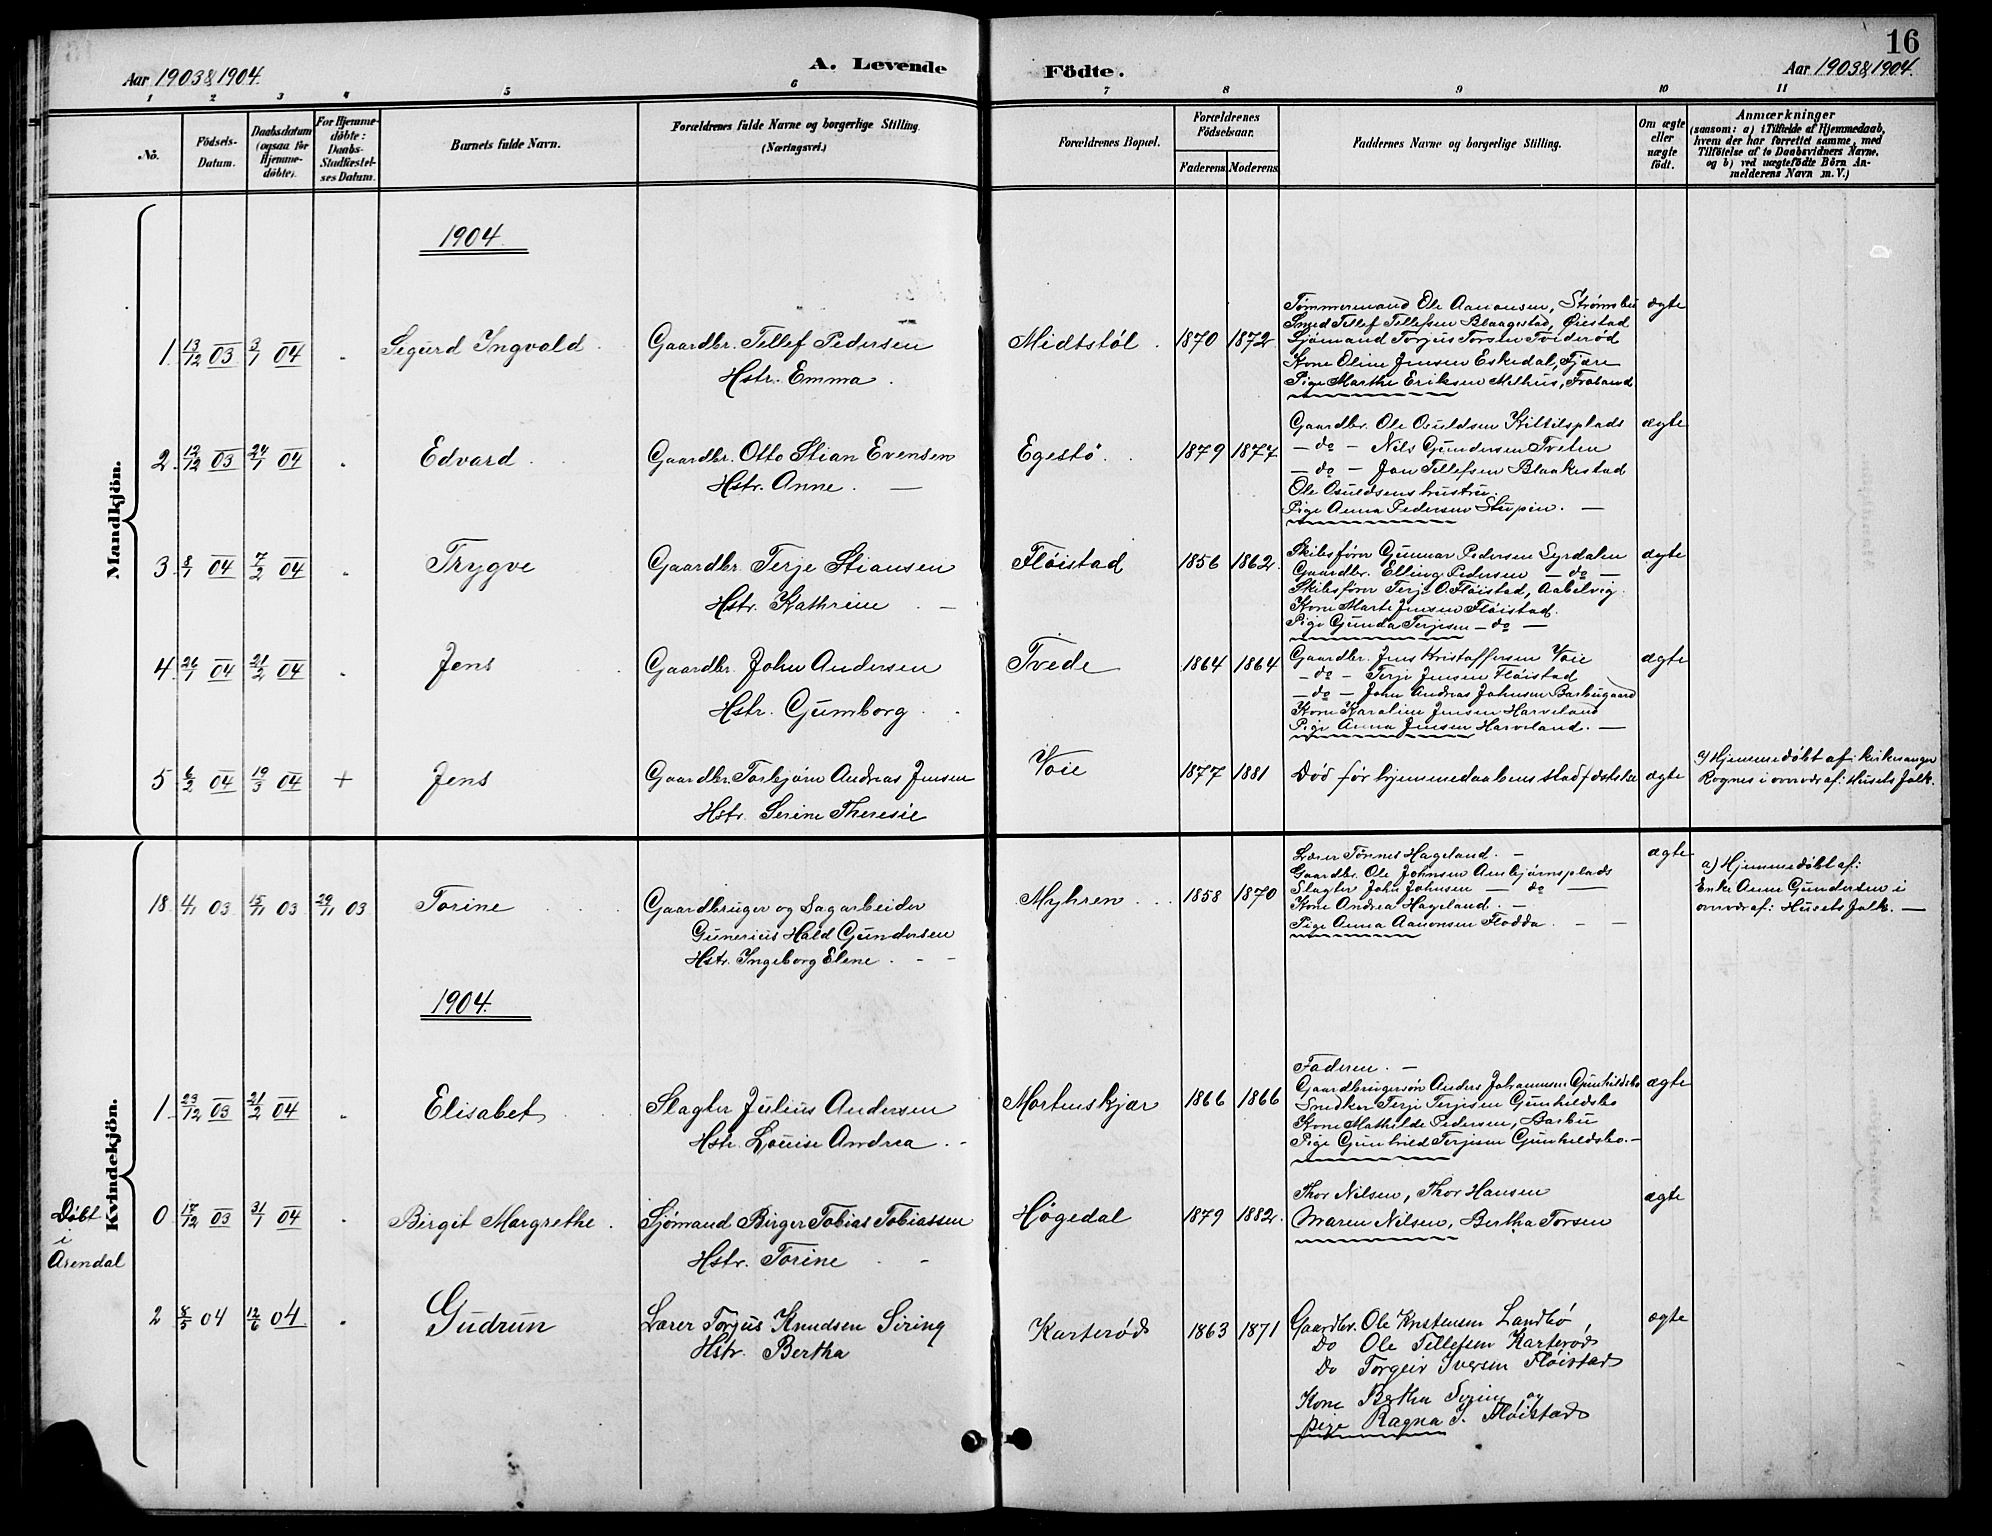 16
Aar 1903&1904.
A. Levende Födte.
Aar 1903&1904.
1 2 3 4 5 6 7 8 9 10 11
No.
Födsels-Datum.
Daabsdatum (ogsaa for Hjemme-döbte).
For Hjemme-döbte: Daabs-Stadfæstel-ses Datum.
Barnets fulde Navn.
Forældrenes fulde Navne og borgerlige Stilling. (Næringsvei.)
Forældrenes Bopæl.
Forældrenes Födselsaar.
Faderens. Moderens.
Faddernes Navne og borgerlige Stilling.
Om ægte eller uægte födt.
Anmærkninger
(saasom: a) i Tilfælde af Hjemmedaab,
hvem der har forrettet samme, med
Tilföielse af to Daabsvidners Navne,
og b) ved uægtefödte Börn An-
melderens Navn m. V.)
Mandkjön.
1904.
1. 13/12 03 3/1 04 Sigurd Ingvald. Gaardbr. Tellef Pedersen Midtstøl. 1870 1872 ægte
Hstr. Emma.
Tømmermand Ole Aanonsen, Strømsbu
Smed Tellef Tellefsen Blaagestad, Øiestad
Sjømand Torjus Torsen Tviderød
Kone Oline Jensen Eskedal, Fjære
Pige Marthe Eriksen Melhus, Froland
2. 12/12 03 24/1 04 Edvard. Gaardbr. Otto Stian Evensen Egestø. 1879 1877 ægte
Hstr. Anne. —
Gaardbr. Ole Osuldsen Kiltilsplads
— do — Nils Gundersen Tveten
— do — Jan Tellefsen Blaakestad
Ole Osuldsens hustru.
Pige Anna Pedersen Stupen. —
3. 8/1 04 7/2 04 Trygve Gaardbr. Terje Stiansen Fløistad 1856 1862 ægte
Hstr. Kathrine. —
Skibsfører Gunnar Pedersen Syrdalen
Gaardbr. Elling Pedersen — do —
Skibsfører Terje O. Fløistad, Aabelvig.
Kone Marte Jensen Fløistad.
Pige Gunda Terjesen — do —
4. 26/1 04 21/2 04 Jens Gaardbr. John Andersen Tvede 1864 1864 ægte
Hstr. Gumborg.
Gaardbr. Jens Kristoffersen Voie
— do — Terje Jensen Fløistad
— do — John Andreas Johnsen Barbugaard
Kone Karoline Jensen Harveland
Pige Anna Jensen Harveland. —
5 6/2 04 19/3 04 + Jens Gaardbr. Torbjørn Andreas Jensen Voie 1877 1881 Død før hjemmedaabens stadfæstelse ægte
Hstr. Serine Theresie
a) Hjemmedøbt af: kirkesanger
Rognes i overvær af: Husets folk.
Kvindekjön.
18 4/11 03 15/11 03 29/11 03 Torine Gaardbruger og Sagarbeider Myhren. 1858 1870 ægte
Gunerius Hald Gundersen
Hstr. Ingeborg Elene.
Lærer Tønnes Hageland. —
Gaardbr. Ole Johnsen Assbjørnsplads
Slagter John Johnsen — do —
Kone Andrea Hageland. —
Pige Anna Aanonsen Flødda. —
a) Hjemmedøbt af:
Enke Anne Gundersen i
overv. af: Husets folk. —
1904.
1. 23/12 03 21/2 04 Elisabet Slagter Julius Andersen Mortenskjær 1866 1866 ægte
Hstr. Louise Andrea.
Faderen. —
Gaardbrugersøn Anders Johannesen Gunhildsbo
Snedker Terje Terjesen Gunhildsbo
Kone Mathilde Pedersen, Barbu
Pige Gunhild Terjesen Gunhildsbo. —
Døbt
i
Arendal
0 17/12 03 31/1 04 Birgit Margrethe. Sjømand Birger Tobias Tobiassen Høgedal 1879 1882 ægte
Hstr. Torine
Thor Nilsen, Thor Hansen
Maren Nilsen, Bertha Torsen
2 8/5 04 12/6 04 Gudrun Lærer Torjus Knudsen Siring Karterød 1863 1871 ægte
Hstr. Bertha
Gaardbr. Ole Kristensen Landbø
Do Ole Tellefsen Karterød
Do Torgeir Iversen Fløistad
Kone Bertha Syrine og
pige Ragna I. Fløistad